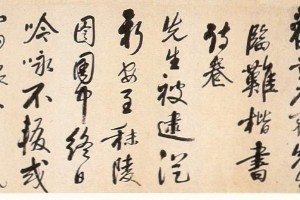 臨難楷書
詩卷
先生被逮從
新安至秣陵
囹圄中終日
吟咏不輟或